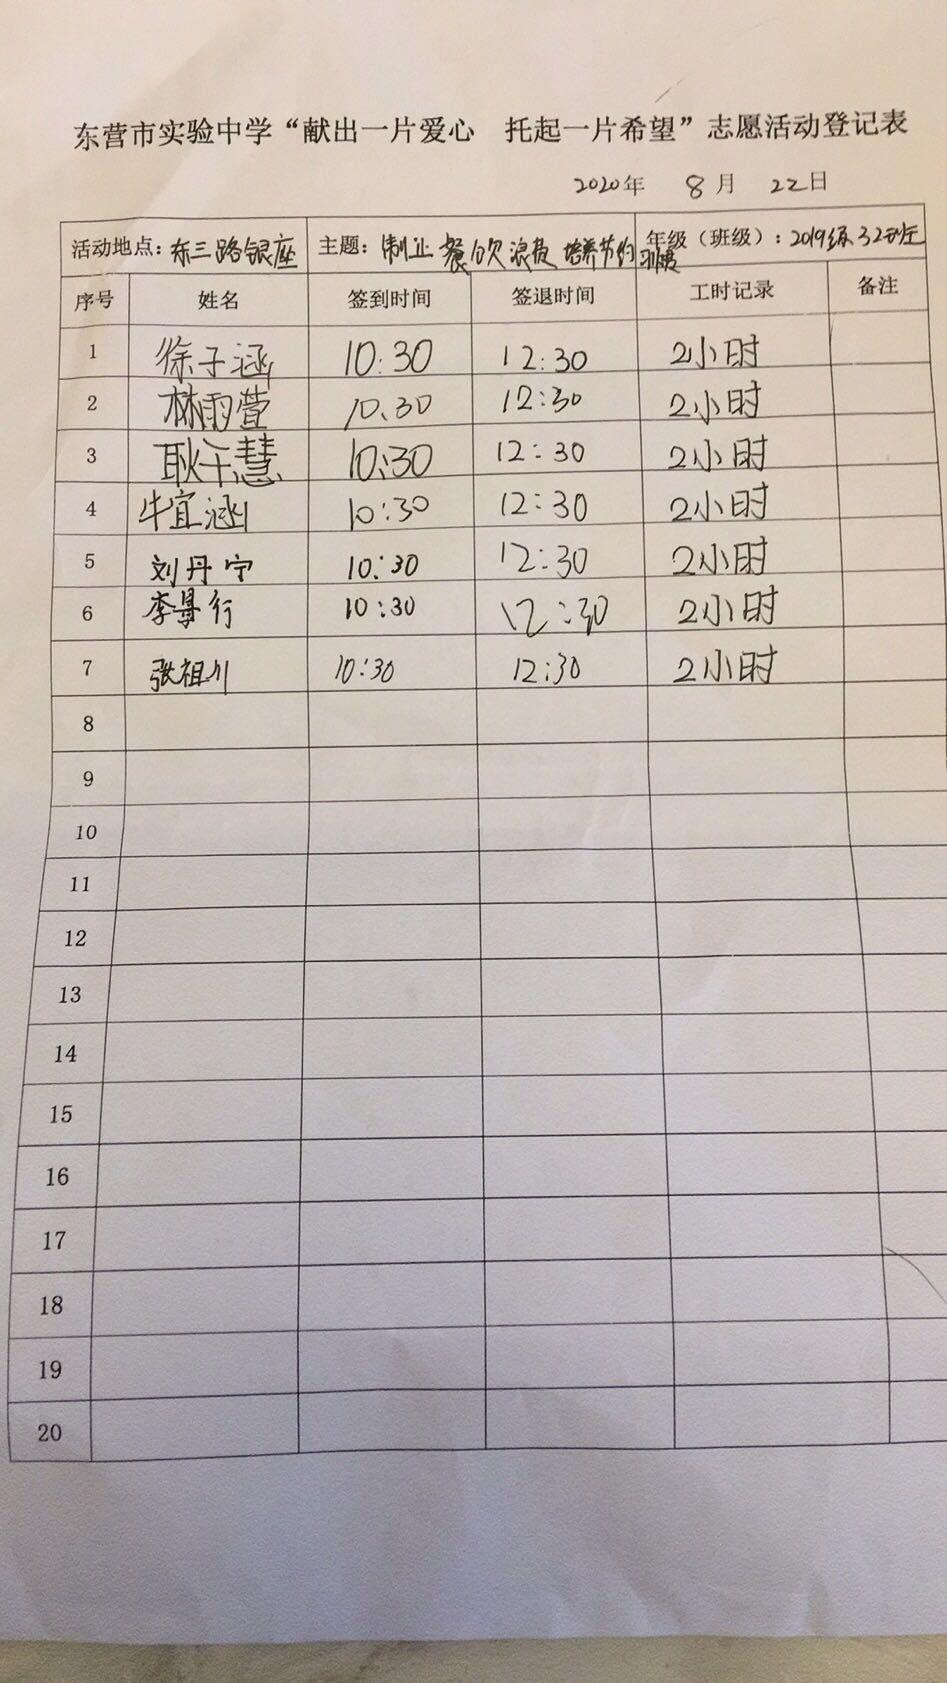 东营市实验中学“献出一片爱心 托起一片希望”志愿活动登记表
2020年 8月 22日
活动地点：东三路银座 主题：制止餐饮浪费 培养节约习惯 年级（班级）：2019级32班
序号 姓名 签到时间 签退时间 工时记录 备注
1 徐子涵 10:30 12:30 2小时
2 林雨萱 10:30 12:30 2小时
3 耿千慧 10:30 12:30 2小时
4 牛宜涵 10:30 12:30 2小时
5 刘丹宁 10:30 12:30 2小时
6 李 行 10:30 12:30 2小时
7 张祖川 10:30 12:30 2小时
8
9
10
11
12
13
14
15
16
17
18
19
20